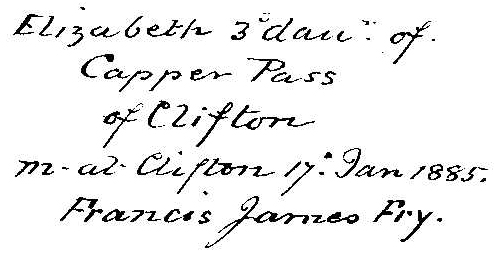 Elizabeth 3ᵈ dauʳ of.
Capper Pass
of Clifton
m. at Clifton 17ᵗ Jan 1885.
Francis James Fry.